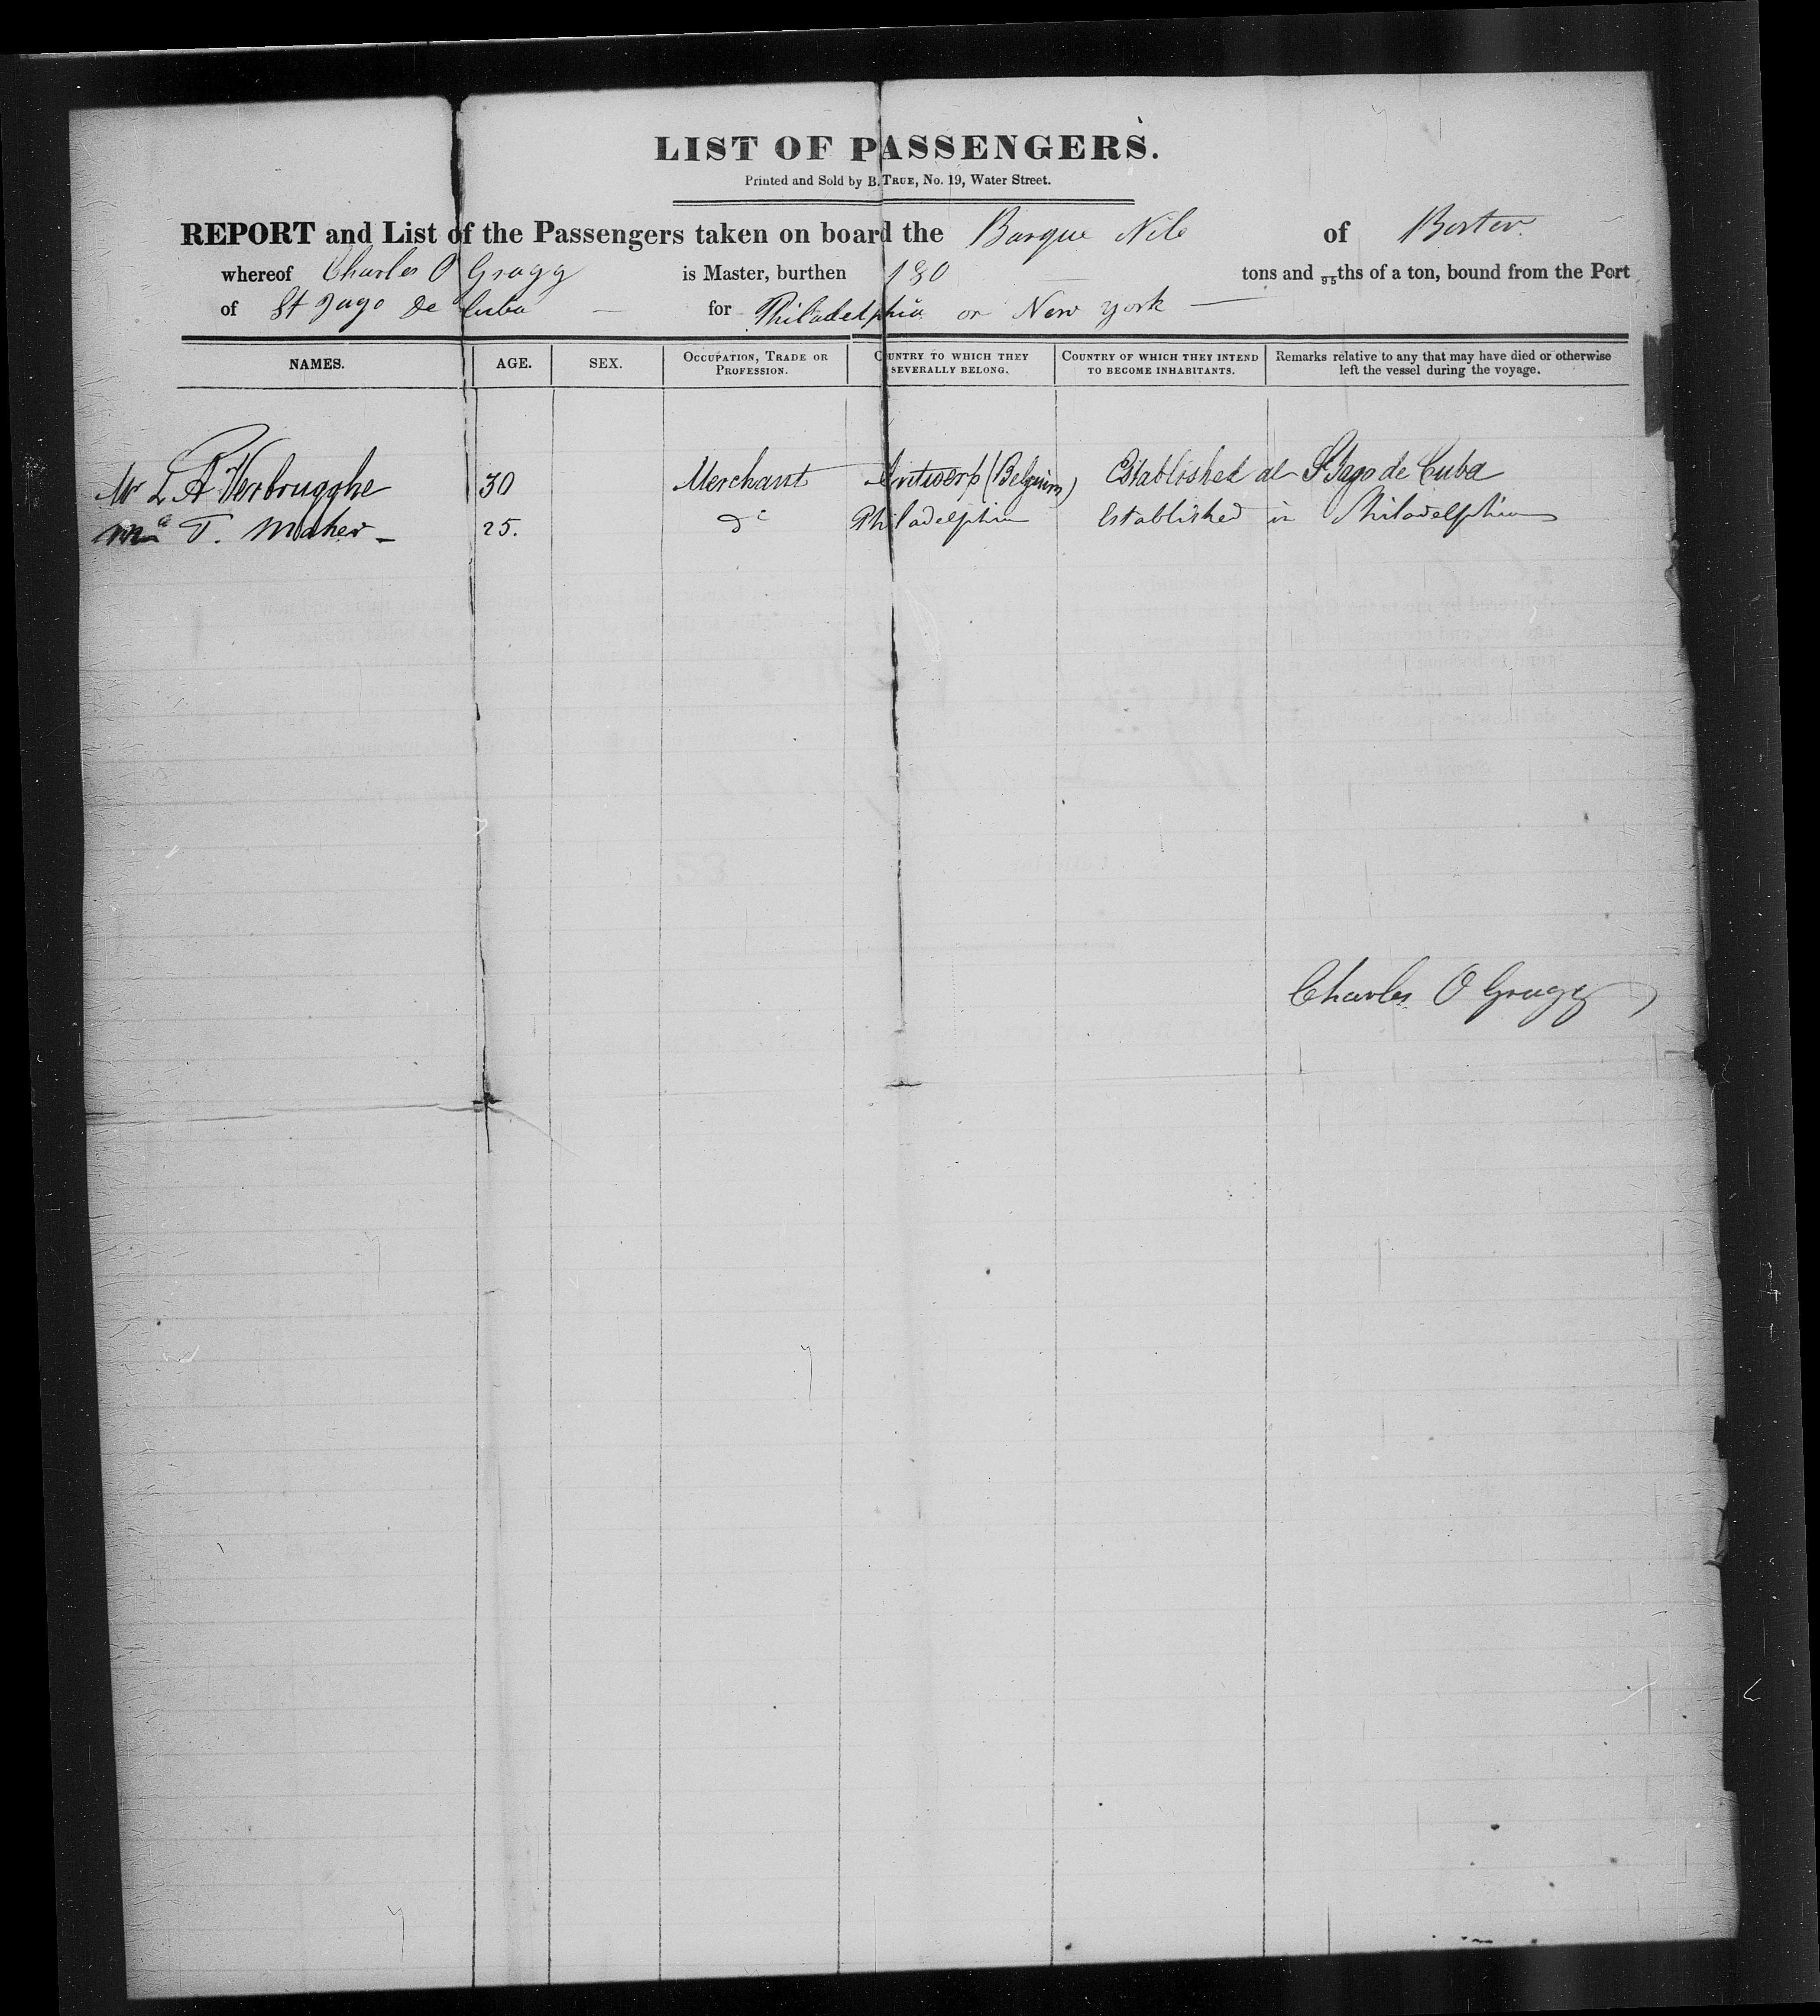 LIST OF PASSENGERS.
Printed and Sold by B. TRUE, No. 19, Water Street.
REPORT and List of the Passengers taken on board the Barque Nile of Boston
whereof Charles O Gragg is Master, burthen 180 tons and 95ths of a ton, bound from the Port
of St Jago de Cuba — for Philadelphia or New York —
NAMES. AGE. SEX. OCCUPATION, TRADE OR PROFESSION. COUNTRY TO WHICH THEY SEVERALLY BELONG. COUNTRY OF WHICH THEY INTEND TO BECOME INHABITANTS. Remarks relative to any that may have died or otherwise left the vessel during the voyage.
Mr L A Verbrugghe 30 Merchant Antwerp (Belgium) Established at St Jago de Cuba
T. Maher - 25. do Philadelphia Established in Philadelphia
Charles O Gragg